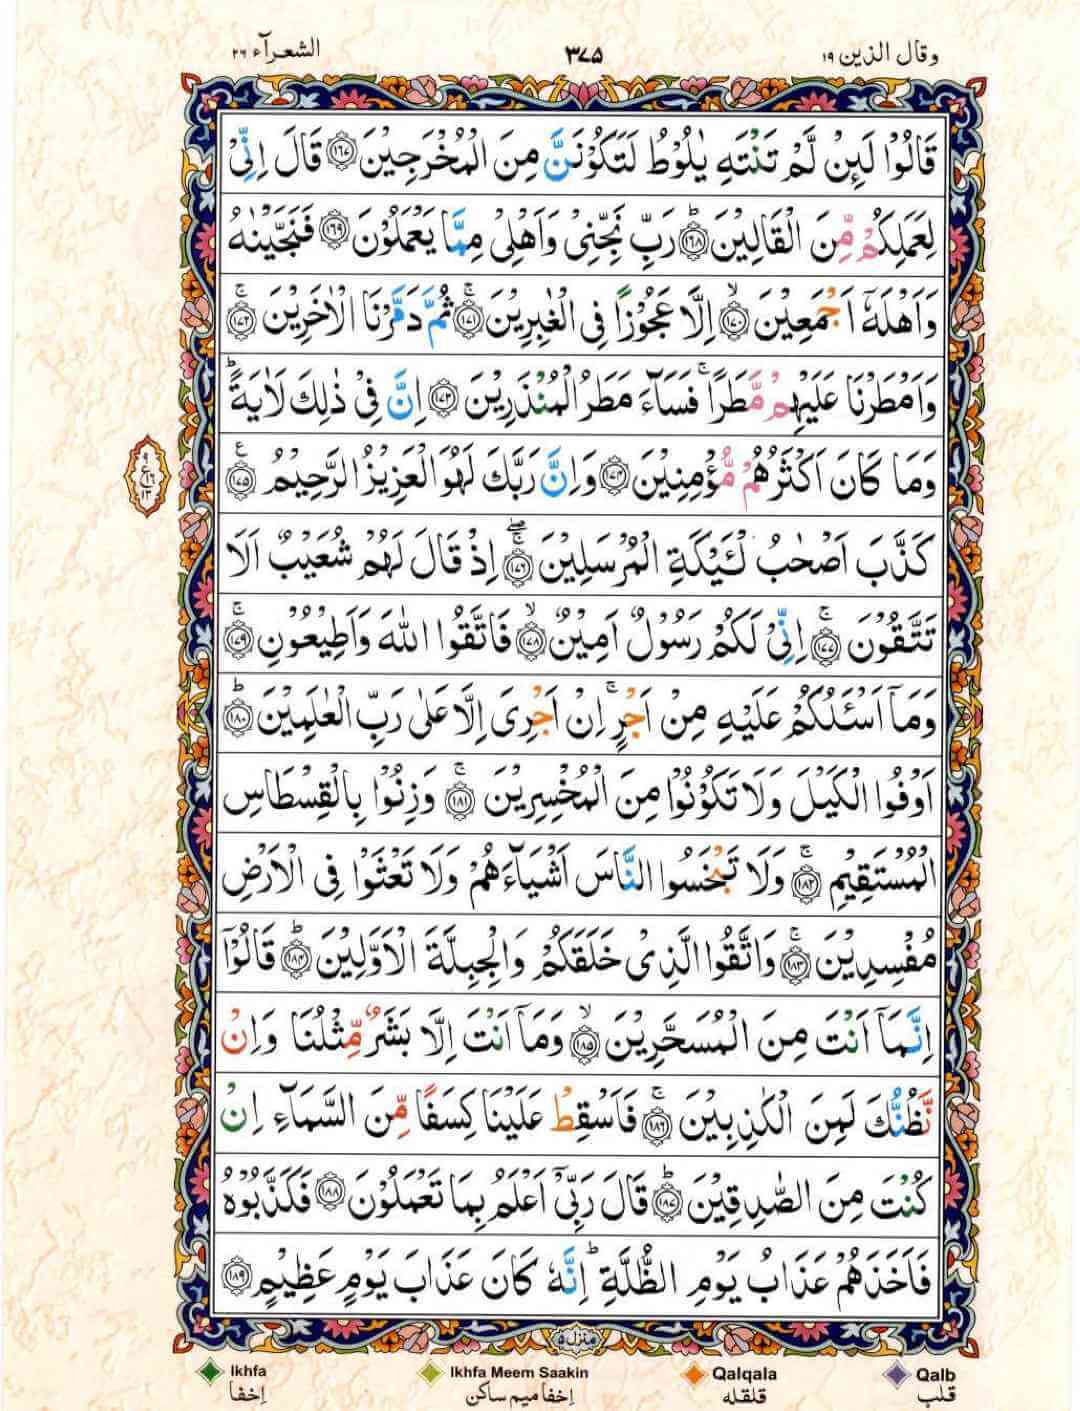 وقال الذين ١٩ ٣٧٥ الشعرآء ٢٦
قَالُوْا لَىِٕنْ لَّمْ تَنْتَهِ يٰلُوْطُ لَتَكُوْنَنَّ مِنَ الْمُخْرَجِيْنَ ﴿١٦٧﴾ قَالَ اِنِّیْ
لِعَمَلِكُمْ مِّنَ الْقَالِيْنَ ﴿١٦٨﴾ؕ رَبِّ نَجِّنِیْ وَاَهْلِیْ مِمَّا يَعْمَلُوْنَ ﴿١٦٩﴾ فَنَجَّيْنٰهُ
وَاَهْلَهٗۤ اَجْمَعِيْنَ ﴿١٧٠﴾ۙ اِلَّا عَجُوْزًا فِی الْغٰبِرِيْنَ ﴿١٧١﴾ۚ ثُمَّ دَمَّرْنَا الْاٰخَرِيْنَ ﴿١٧٢﴾ۚ
وَاَمْطَرْنَا عَلَيْهِمْ مَّطَرًا ۚ فَسَآءَ مَطَرُ الْمُنْذَرِيْنَ ﴿١٧٣﴾ اِنَّ فِیْ ذٰلِكَ لَاٰيَةً ؕ
وَمَا كَانَ اَكْثَرُهُمْ مُّؤْمِنِيْنَ ﴿١٧٤﴾ وَاِنَّ رَبَّكَ لَهُوَ الْعَزِيْزُ الرَّحِيْمُ ﴿١٧٥﴾ ع
٩
ع
١٦
١٣
كَذَّبَ اَصْحٰبُ لْـَٔيْكَةِ الْمُرْسَلِيْنَ ﴿١٧٦﴾ۚۖ اِذْ قَالَ لَهُمْ شُعَيْبٌ اَلَا
تَتَّقُوْنَ ﴿١٧٧﴾ۚ اِنِّیْ لَكُمْ رَسُوْلٌ اَمِيْنٌ ﴿١٧٨﴾ۙ فَاتَّقُوا اللّٰهَ وَاَطِيْعُوْنِ ﴿١٧٩﴾ۚ
وَمَاۤ اَسْـَٔلُكُمْ عَلَيْهِ مِنْ اَجْرٍ ۚ اِنْ اَجْرِیَ اِلَّا عَلٰی رَبِّ الْعٰلَمِيْنَ ﴿١٨٠﴾ؕ
اَوْفُوا الْكَيْلَ وَلَا تَكُوْنُوْا مِنَ الْمُخْسِرِيْنَ ﴿١٨١﴾ۚ وَزِنُوْا بِالْقِسْطَاسِ
الْمُسْتَقِيْمِ ﴿١٨٢﴾ۚ وَلَا تَبْخَسُوا النَّاسَ اَشْيَآءَهُمْ وَلَا تَعْثَوْا فِی الْاَرْضِ
مُفْسِدِيْنَ ﴿١٨٣﴾ۚ وَاتَّقُوا الَّذِیْ خَلَقَكُمْ وَالْجِبِلَّةَ الْاَوَّلِيْنَ ﴿١٨٤﴾ؕ قَالُوْۤا
اِنَّمَاۤ اَنْتَ مِنَ الْمُسَحَّرِيْنَ ﴿١٨٥﴾ۙ وَمَاۤ اَنْتَ اِلَّا بَشَرٌ مِّثْلُنَا وَاِنْ
نَّظُنُّكَ لَمِنَ الْكٰذِبِيْنَ ﴿١٨٦﴾ۚ فَاَسْقِطْ عَلَيْنَا كِسَفًا مِّنَ السَّمَآءِ اِنْ
كُنْتَ مِنَ الصّٰدِقِيْنَ ﴿١٨٧﴾ؕ قَالَ رَبِّیْۤ اَعْلَمُ بِمَا تَعْمَلُوْنَ ﴿١٨٨﴾ فَكَذَّبُوْهُ
فَاَخَذَهُمْ عَذَابُ يَوْمِ الظُّلَّةِ ؕ اِنَّهٗ كَانَ عَذَابَ يَوْمٍ عَظِيْمٍ ﴿١٨٩﴾
منزل ۵
Ikhfa Ikhfa Meem Saakin Qalqala Qalb
اِخفا اِخفا میم ساکن قلقله قلب